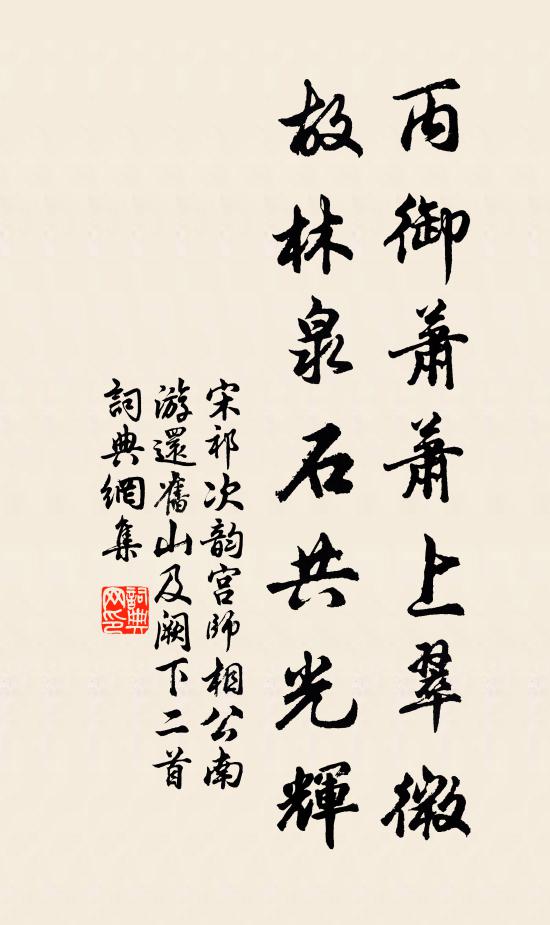 丙御蕭蕭上翠微
故林泉石共光輝
宋祁次韵宫師相公南
游還舊山及阙下二首
詞典網集
詞典
网印